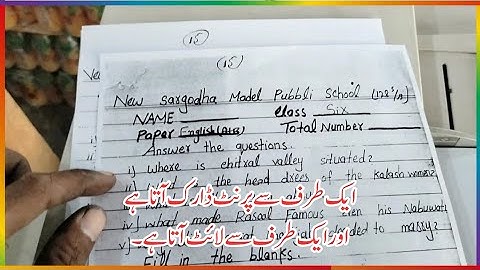 15
15
New Sargodha Model Pubbli School
NAME class Six
Paper English Total Number
Answer the questions.
i) where is chitral valley situated?
the head drees of the kalash women
ایک طرف سے پرنٹ ڈارک آتا ہے
what made Rasool Famous his Nabuwat
اور ایک طرف سے لائٹ آتا ہے۔
to marry?
Fill in the blanks.